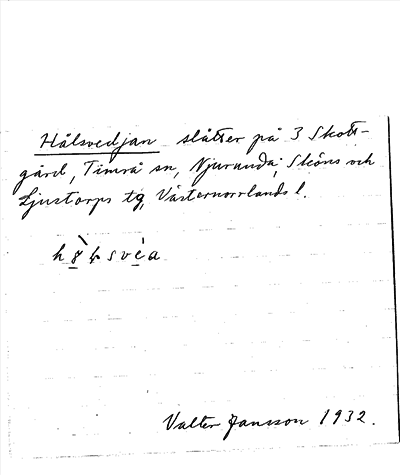 Hålsvedjan slåtter på 3 Skott-
gård, Timrå sn, Njurunda, Sköns och
Ljustorps tg, Västernorrlands l.
Valter Jansson 1932.